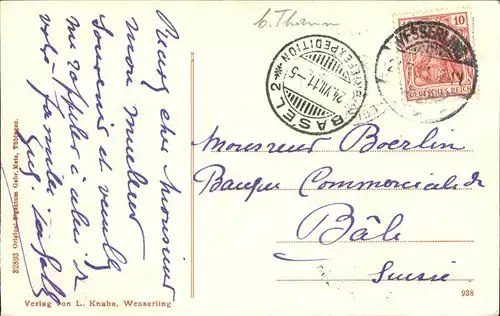 b. Thann
Recevez cher Monsieur
mon meilleur
Souvenir et veuillez
me rappeler à celui de
votre famille
32893 Original-Eigentum Gebr. Metz, Tübingen.
Verlag von L. Knabe, Wesserling
BASEL 2
BRIEFEXPEDITION
24.VII.11.-5
WESSERLING
10
DEUTSCHES REICH
Monsieur Boerlin
Banque Commerciale de
Bâle
Suisse
938